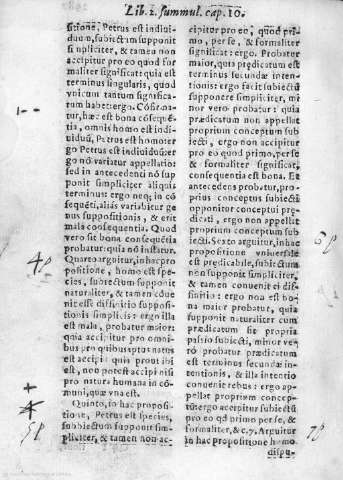 Lib. 2. summul. cap. 10.
sitione, Petrus est indiui-
duum, subiectum supponit
simpliciter, & tamen non
accipitur pro eo quod for
maliter significat: quia est
terminus singularis, quod
vnicum tantum significa-
tum habet: ergo. Cōfir na-
tur, hæc est bona cōsequē-
tia, omnis homo est indi-
uiduū, Petrus est homo: er
go Petrus est indiuiduū: er
go nō variatur appellatio:
sed in antecedenti nō sup
ponit simpliciter aliquis
terminus: ergo neq; in cō
sequēti, aliàs variabitur ge
nus suppositionis, & erit
mala cōsequentia. Quod
verò sit bona consequētia
probatur: quia nō instatur.
Quarto arguitur, in hac pro
positione, homo est spe-
cies, subiectum supponit
naturaliter, & tamen cōue
nit esse difinitio suppositio
tionis simplicis: ergo illa
est mala, probatur maior:
quia accipitur pro omni
bus pro quibus aptus natus
est accipi: quia prout ibi
est, non potest accipi nisi
pro natura humana in cō-
muni, quæ vna est.
Quinto, in hac proposi-
tione, Petrus est species,
subiectum supponit sim-
pliciter, & tamen non ac-
cipitur pro eo, quod pri-
mo, per se, & formaliter
significat: ergo. Probatur
maior, quia prædicatum est
terminus secundæ inten-
tionis: ergo facit subiectū
supponere simpliciter, mi
nor verò probatur: quia
prædicatum non appellat
proprium conceptum sub
iecti, ergo non accipitur
pro eo quod primo, per se
& formaliter significat,
consequentia est bona. Et
antecedens probatur, pro-
prius conceptus subiecti
opponitur conceptui præ-
dicati, ergo non appellat
proprium conceptum sub
iecti. Sexto arguitur, in hac
propositione vniuersale
est prædicabile, subiectum
non supponit simpliciter,
& tamen conuenit ei difi
nitio: ergo non est bo-
na maior probatur, quia
supponit naturaliter cum
prædicatum sic propria
passio subiecti, minor ve-
rò probatur prædicatum
est terminus secundæ in-
tentionis, & illa intentio
conuenit rebus: ergo ap-
pellat proprium concep-
tū: ergo accipitur subiectū
pro eo qd primo per se, &
formaliter, & c. 7. Arguitur
in hac propositione homo
dispu-